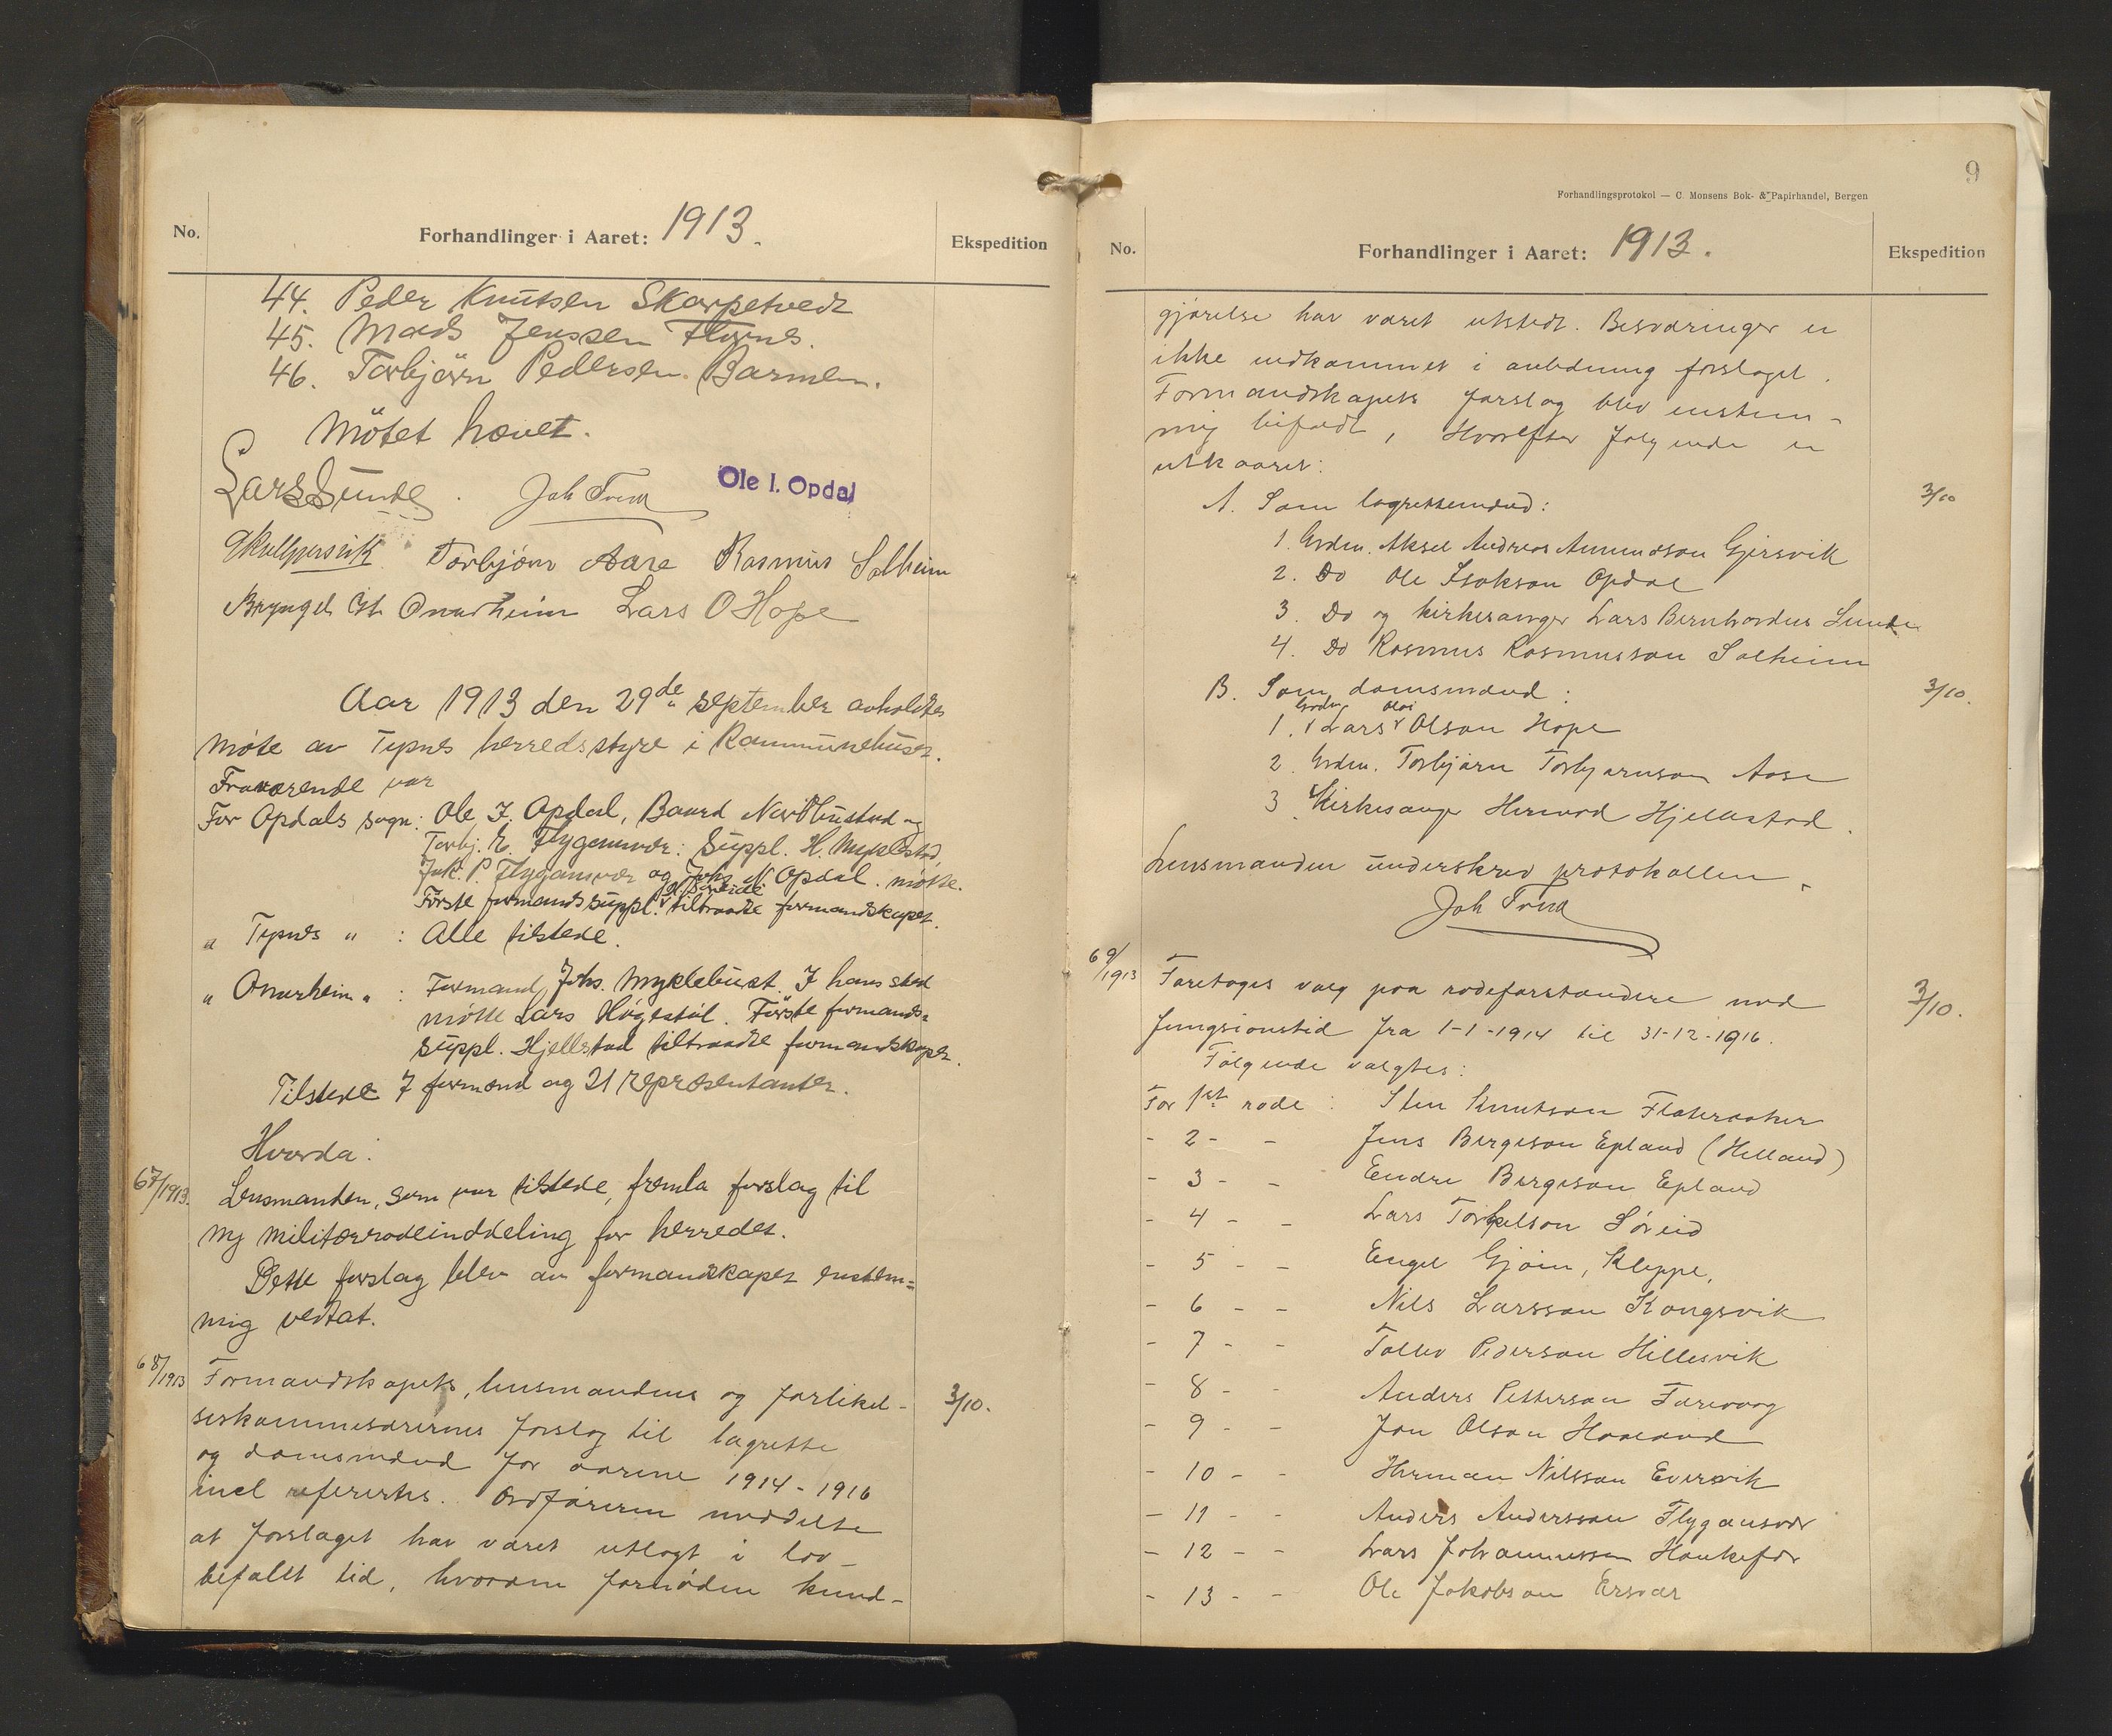 No.
Forhandlinger i Aaret: 1913.
Ekspedition
44. Peder Knutsen Skarpetvedt
45. Mads Jenssen Flornes.
46. Torbjörn Pedersen Barmen.
Mötet hævet.
Lars Sunde. Joh Tvedt Ole I. Opdal
Torbjörn Aase Rasmus Solheim
Bryngel Onarheim Lars O Hope
Aar 1913 den 29de september avholdtes
möte av Tysnes herredsstyre i Kommunehuset.
Fraværende var
For Opdals sogn: Ole I. Opdal, Baard Nordhustad og
Torbj. E. Flygansvær: Suppl. H. Myklestad,
Jak. P. Flygansvær og Johs N Opdal. mötte.
Förste formands suppl. tiltraadte formandskapet.
" Tysnes " : Alle tilstede.
" Onarheim " : Formand Johs. Myklebust. I hans sted
mötte Lars Högestöl. Förste formands=
suppl. Hjellestad tiltraadte formandskapet.
Tilstede 7 formænd og 21 repræsentanter.
Hvorda:
67/1913. Lensmanden, som var tilstede, fremla forslag til
ny militærrodeinddeling for herredet.
Dette forslag blev av formandskapet enstem=
mig vedtat.
68/1913 Formandskapets, lensmandens og forlikel-
seskommisærernes forslag til lagrette 3/10.
og domsmænd for aarene 1914-1916
incl refereertes. Ordføreren meddelte
at forslaget har været utlagt i lov-
befalt tid, hvorom fornøden kund-
9
Forhandlingsprotokol — C. Monsens Bok- & Papirhandel, Bergen
No.
Forhandlinger i Aaret: 1913.
Ekspedition
gjørelse har været utstedt. Besværinger er
ikke indkommet i anledning forslaget.
Formandskapets forslag blev enstem-
mig bifaldt, Hvorefter følgende er
utkaaret:
A. Som lagrettemænd: 3/10
1. Grdm. Aksel Andreas Amundson Gjersvik
2. Do Ole Isakson Opdal
3. Do og kirkesanger Lars Bernhardus Sunde
4. Do Rasmus Rasmusson Solheim
B. Som domsmænd: 3/10.
Grdm. Oloi
1. Lars Olson Hope
2. Grdm. Torbjørn Torbjørnson Aase
3. Kirkesanger Hermod Hjellestad.
Lensmanden underskrev protokollen.
Joh Tvedt
69/1913 Foretoges valg paa rodeforstandere med 3/10.
fungsionstid fra 1-1-1914 til 31-12-1916.
Følgende valgtes:
For 1ste rode: Sten Knutson Flateraaker
- 2 - - Jens Bergeson Epland (Helland)
- 3 - - Endre Bergeson Epland
- 4 - - Lars Torkelson Søreid
- 5 - - Engel Gjøin, Kleppe,
- 6 - - Nils Larsson Kongsvik
- 7 - - Tollev Pederson Hillesvik
- 8 - - Anders Petterson Færevaag
- 9 - - Jon Olson Haaland
- 10 - - Herman Nilsson Eversvik
- 11 - - Anders Andersson Flygansvær
- 12 - - Lars Johannesson Haukefær
- 13 - - Ole Jakobson Ersvær